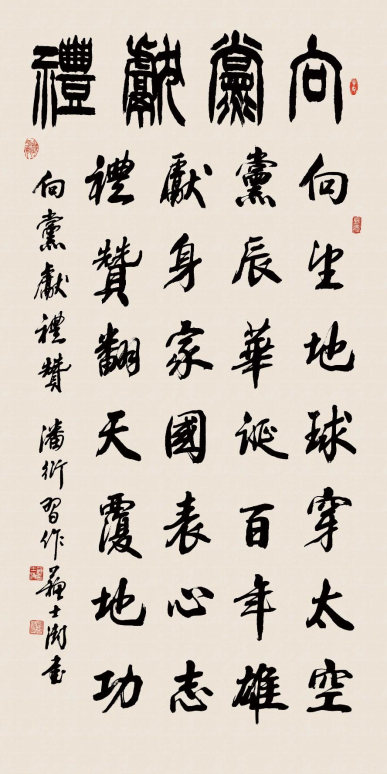 向黨獻禮
向望地球穿太空
黨辰華誕百年雄
獻身家國表心志
禮贊翻天覆地功
向黨獻禮贊 潘衍習作 蘇士澍書